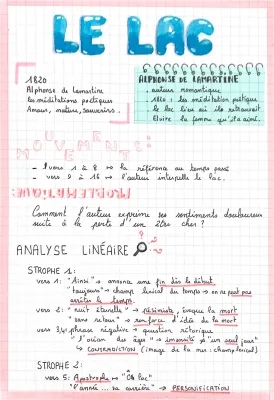 LE LAC
1820
Alphonse de Lamartine
les méditations poétiques
Amour, nature, souvenirs.
ALPHONSE DE LAMARTINE
auteur romantique
1820 : les méditation poétique
le lac lieu où ils retrouvait
Elvire la femme qu'il a aimé.
MOUVEMENTS:
- vers 1 à 8 ↦ la référence au temps passé
- vers 9 à 16 ↦ l'auteur interpelle le lac.
PROBLEMATIQUE:
Comment l'auteur exprime ses sentiments douloureux
suite à la perte d'un être cher ?
ANALYSE LINÉAIRE
STROPHE 1:
vers 1: "Ainsi" → annonce une fin dès le début.
"toujours" → champ lexical du temps → on ne peut pas
arrêter le temps.
vers 2: "nuit éternelle" → pessimiste, évoque la mort
"sans retour" → renforce l'idée de la mort
vers 3,4: phrase négative → question rétorique
"l'océan des âges" → immensité ≠ "un seul jour"
↳ CONTRADICTION (image de la mer: champ lexical)
STROPHE 2:
vers 5: Apostrophe → "Ô lac"
"l'année ... sa carrière" → PERSONIFICATION